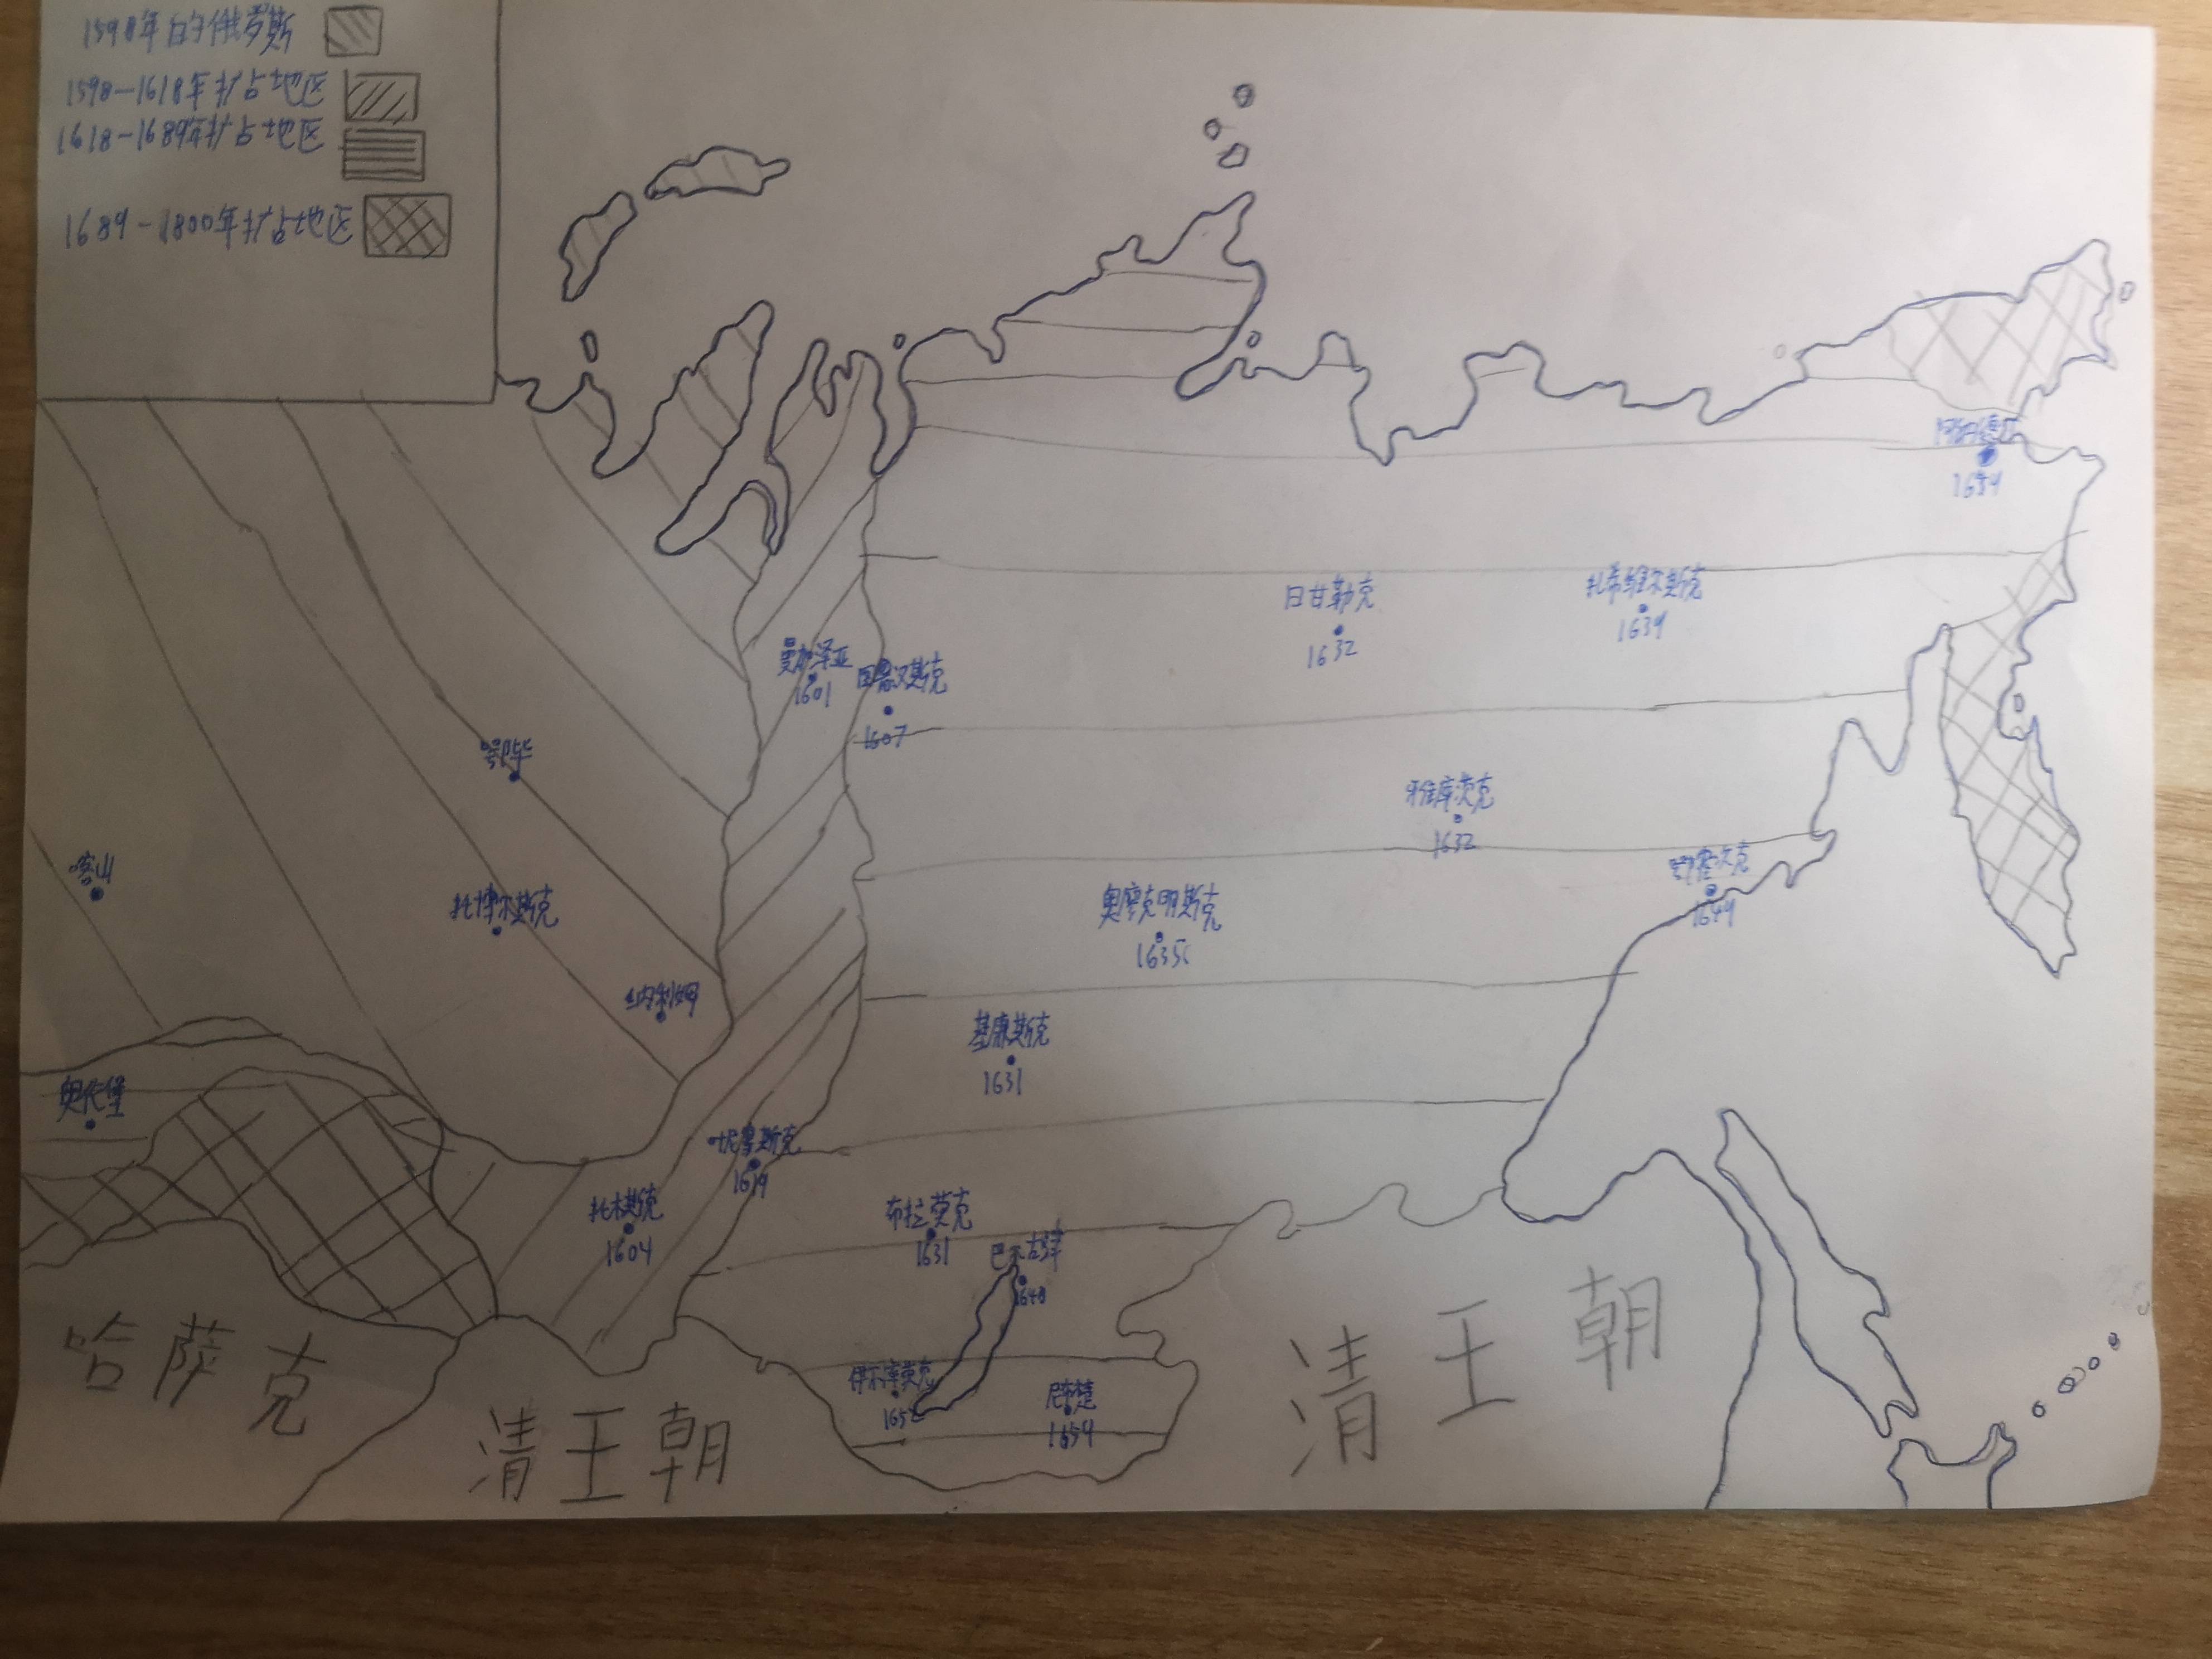 1598年的俄罗斯
1598-1618年扩占地区
1618-1689年扩占地区
1689-1800年扩占地区
1684
日甘勒克
1632
扎希维尔斯克
1639
曼加泽亚
1601
图鲁汉斯克
1607
鄂毕
雅库茨克
1632
喀山
托博尔斯克
鄂霍次克
1649
奥廖克明斯克
1635
纳利姆
基康斯克
1631
奥伦堡
1619
托木斯克
1604
布拉茨克
1631
1648
伊尔库茨克
1652
尼布楚
1654
哈萨克
清王朝
清王朝